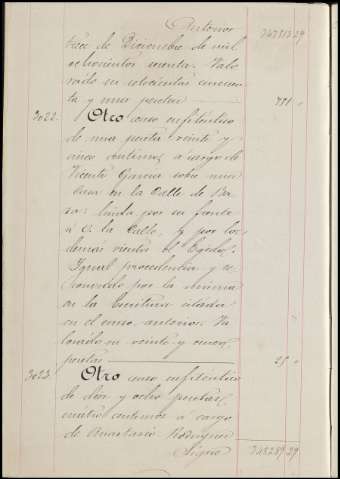 Anterior 748133 29
trece de Diciembre de mil
ochocientos ochenta. Valo
rado en setecientas cincuen
ta y una pesetas 751 "
3022. Otro censo enfitéutico
de una peseta veinte y
cinco centimos, a cargo de
Vicente Garcia sobre una
casa en la Calle de
linda por su frente
á la Calle, y por los
demas vientos el
Igual procedencia y re
conocido por la misma
en la Escritura citada
en el censo anterior. Va
lorado en veinte y cinco
pesetas 25 "
3023. Otro censo enfitéutico
de diez y ocho pesetas,
cuatro centimos á cargo
de Anastasio Rodriguez
Sigue 29